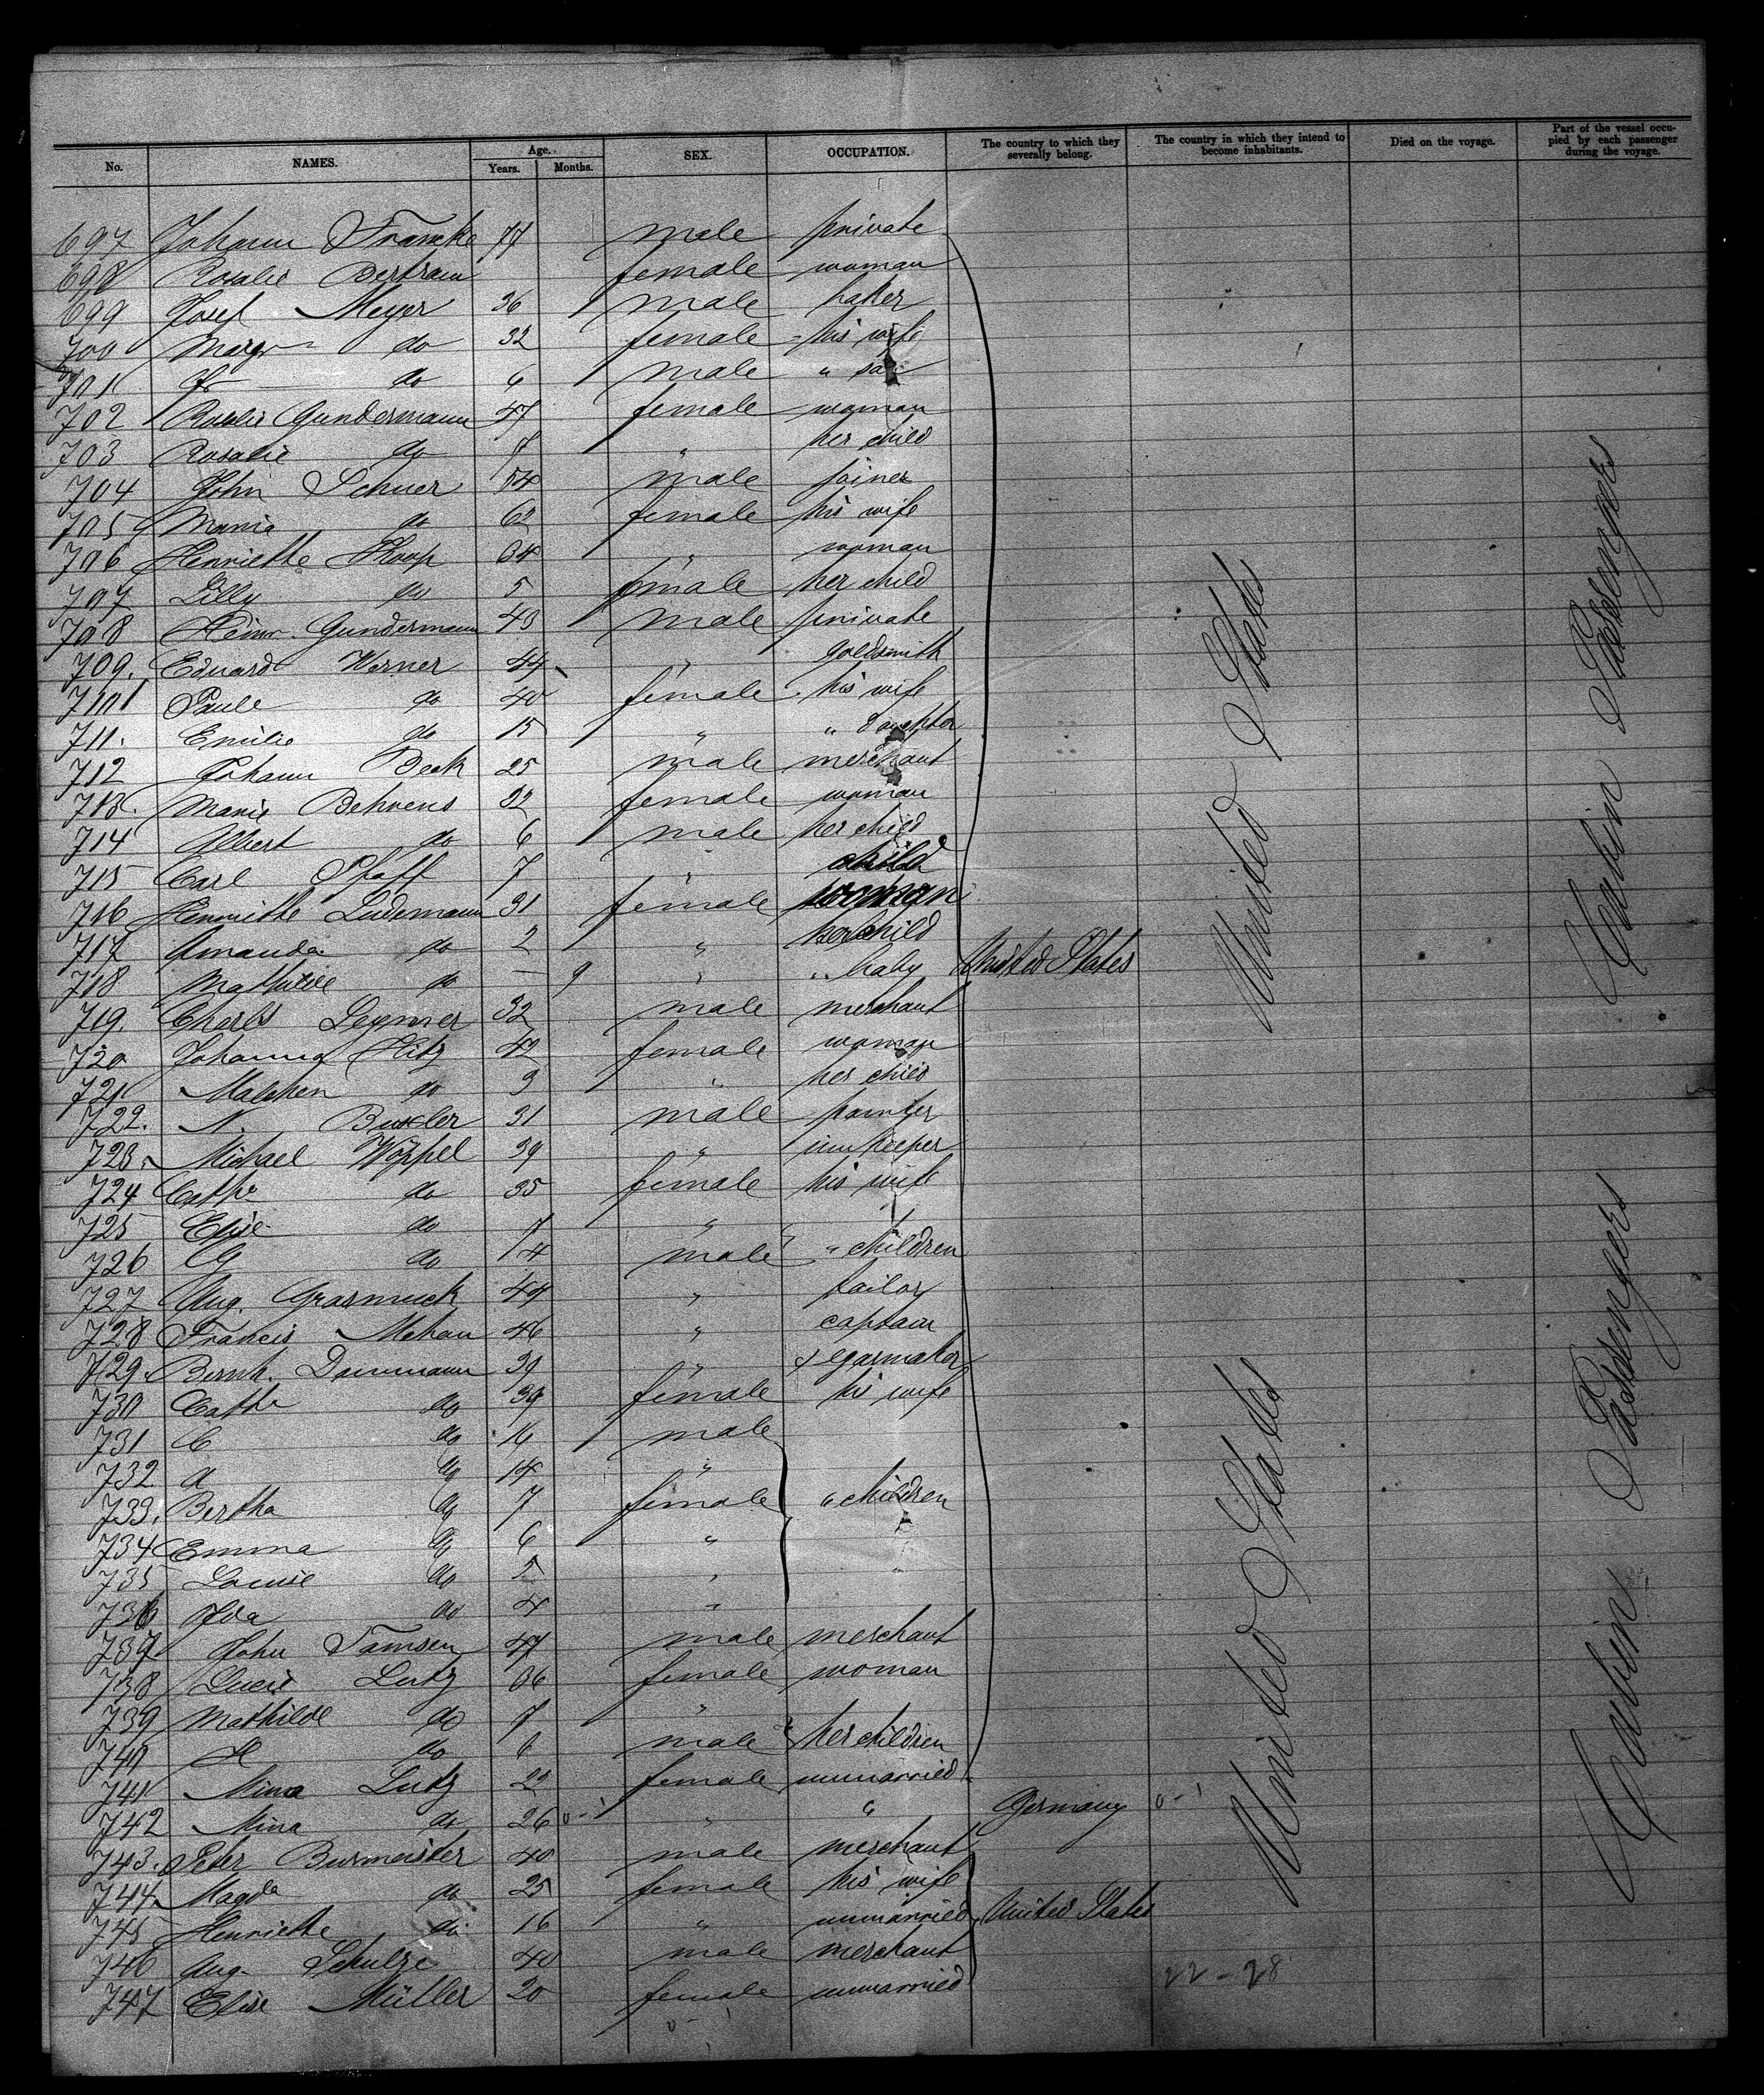 No. NAMES. Age. Years. Months. SEX. OCCUPATION. The country to which they severally belong. The country in which they intend to become inhabitants. Died on the voyage. Part of the vessel occupied by each passenger during the voyage.
697 Johann male private
698 Rosalie Bertram female woman
699 Josef Meyer 36 male baker
700 Margr do 32 female his wife
701 do 6 male " son
702 Rosalie Gundermann 47 female woman
703 Rosalie do 7 " her child
704 John Schuer 54 male joiner
705 Maria do 62 female his wife
706 Henriette 34 " woman
707 Lilly do 5 female her child
708 Heinr. Gundermann 43 male private
709. Eduard Werner 44 " goldsmith
710 Paule do 40 female his wife
711. Emilie do 15 " " daughter
712 Johann Beck 25 male merchant
713. Marie Behrens 32 female woman
714 Albert do 6 male her child
715 Carl Pfaff 7 " child
716 Henriette Ludemann 31 female woman
717 Amanda do 2 " her child
718 Mathilde do — 9 " " baby United States
719. Charls 32 male merchant
720 Johanna Hitz 42 female woman
721 Malchen do 3 " her child
722. N. Buxler 31 male painter
723. Michael Wöppel 39 " innkeeper
724 Cathe do 35 female his wife
725 Elise do 7 "
726 do 4 male " children
727 Aug. Grasmuck 44 " tailor
728 Francis Mehan 46 " captain
729. Bernh. Dammann 39 " segarmaker
730 Cathe do 39 female his wife
731 C do male
732 A do 14 "
733. Bertha do 7 female " children
734 Emma do 6 "
735 Louise do 5 "
736 Ida do 4 "
737 John Tamsen 47 male merchant
738 Lucie Lutz 36 female woman
739 Mathilde do 7 "
740 H do 6 male her children
741 Mina Lutz 22 female unmarried
742 Mina do 26 " " Germany
743. Peter Burmeister 40 male merchant
744 Magda do 25 female his wife
745 Henriette do 16 " unmarried United States
746 Aug. Schulze 40 male merchant
747 Elise Müller 20 female unmarried
22-28
United States
United States
Cabin Passengers
Cabin Passengers